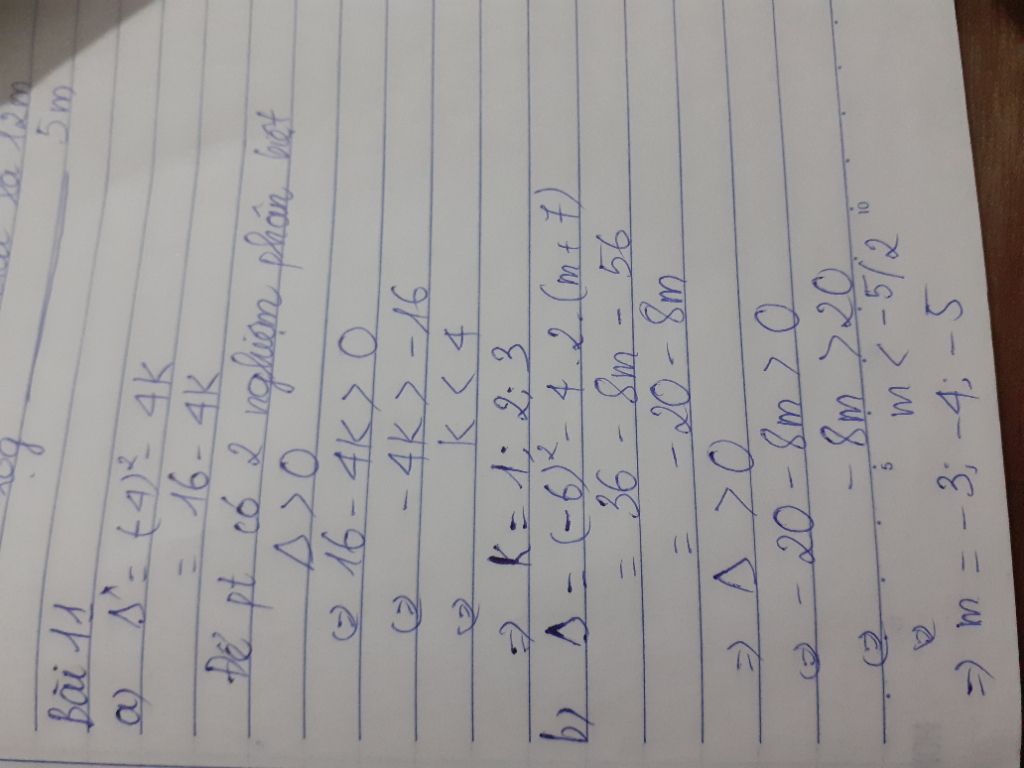 là 12m
5m
Bài 11
a) Δ = (-4)² - 4K
= 16 - 4K
Để pt có 2 nghiệm phân bệt
Δ > 0
⇔ 16 - 4K > 0
⇔ - 4K > -16
⇔ K < 4
⇒ K = 1; 2; 3
b) Δ = (-6)² - 4.2.(m+7)
= 36 - 8m - 56
= -20 - 8m
⇒ Δ > 0
⇔ -20 - 8m > 0
⇔ - 8m > 20
⇔ m < -5/2
⇒ m = -3; -4; -5
5
10